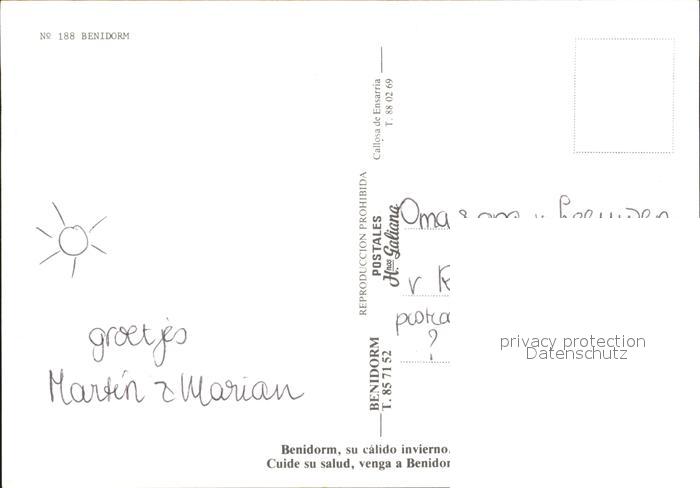 Nº 188 BENIDORM
groetjes
Martin & Marian
Callosa de Ensarria
T. 88 02 69
REPRODUCCION PROHIBIDA
POSTALES
Hnos Galiana
BENIDORM
T. 85 71 52
Oma
v
?
privacy protection
Datenschutz
Benidorm, su cálido invierno.
Cuide su salud, venga a Benidor